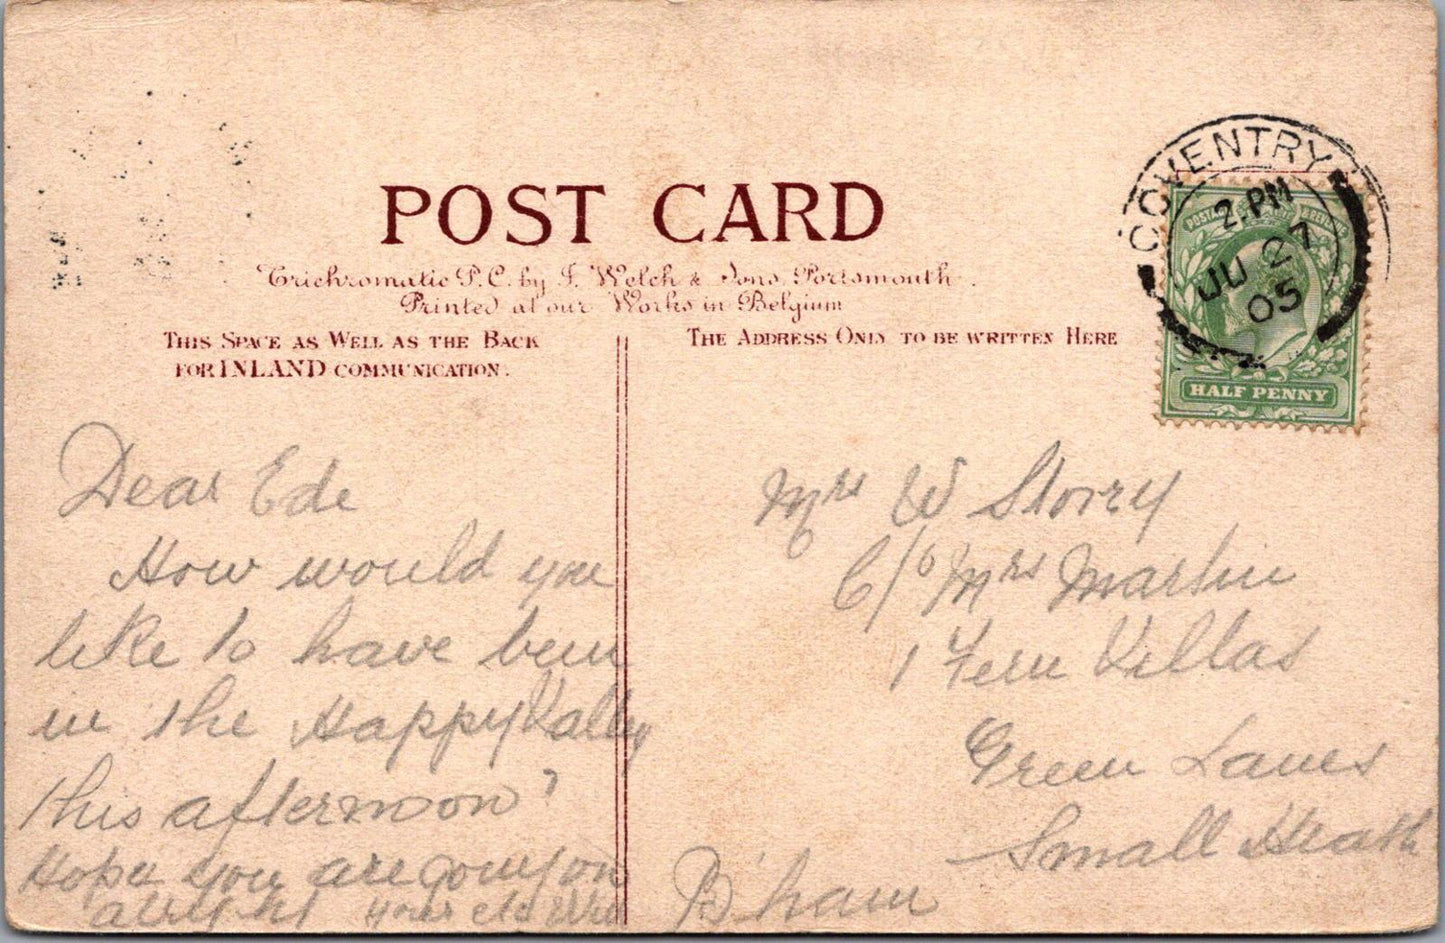 POST CARD
Trichromatic P.C. by F. Welch & Sons, Portsmouth.
Printed at our Works in Belgium
THIS SPACE AS WELL AS THE BACK
FOR INLAND COMMUNICATION.
THE ADDRESS ONLY TO BE WRITTEN HERE
COVENTRY
2.PM
JU 27
05
POSTAGE & REVENUE
HALF PENNY
Dear Ede
How would you
like to have been
in the Happy Valley
this afternoon?
Hope you are going on
alright Yours etc Will
Mrs W Storry
C/o Mrs Martin
1 Fern Villas
Green Lanes
Small Heath
B'ham